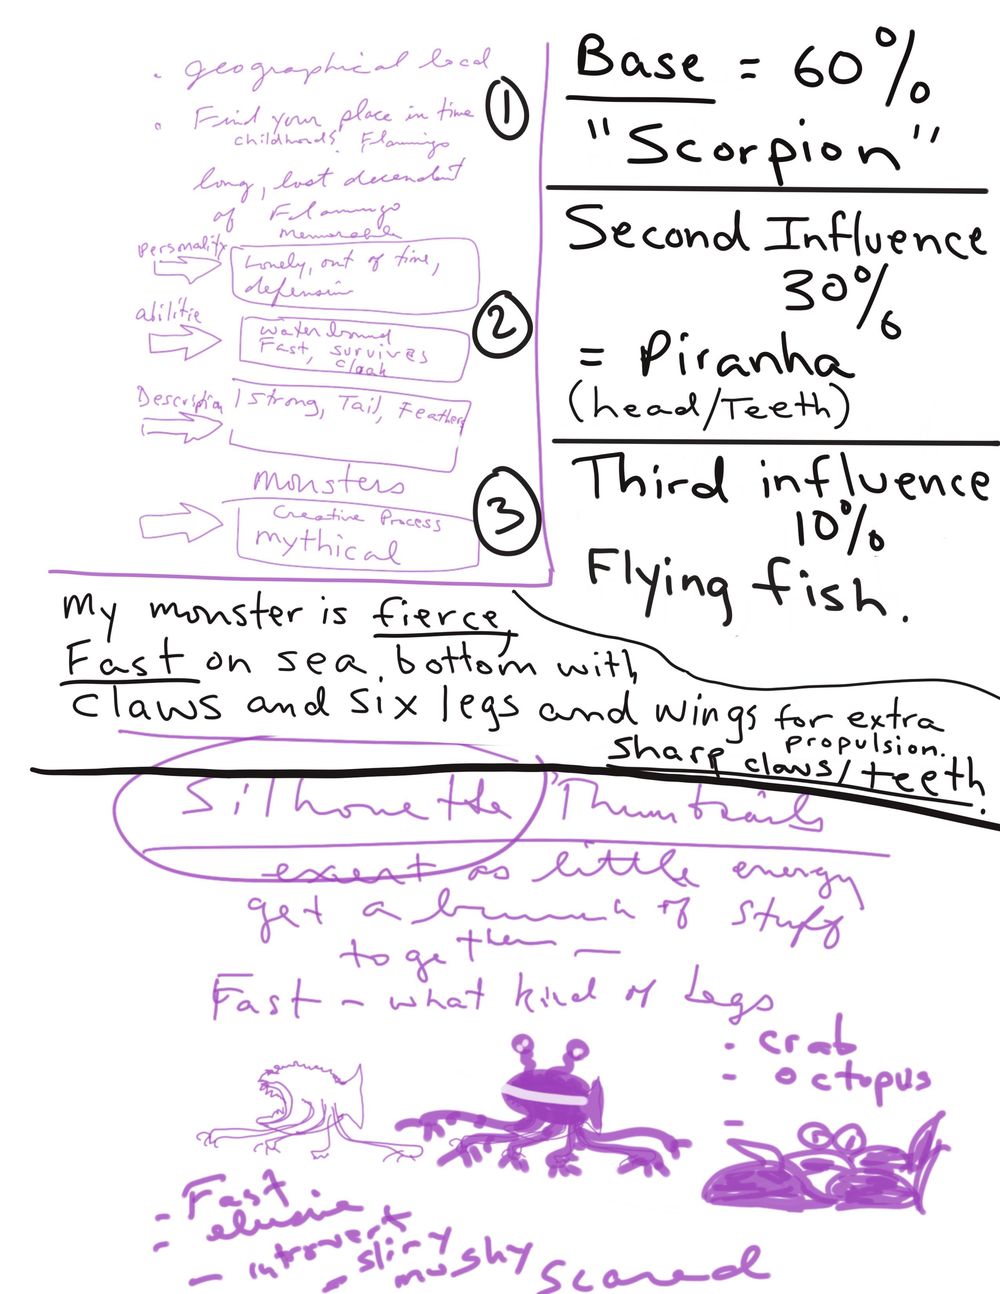 • geographical local
• Find your place in time
childhoods! Flamingo
long, lost decendent
of Flamingo
memorable
personality
Lonely, out of time,
defensive
abilitie
water bound
Fast, survives
cloak
Description
strong, Tail, Feathers
monsters
Creative Process
mythical
①
②
③
Base = 60%
"Scorpion"
Second Influence
30%
= Piranha
(head/Teeth)
Third influence
10%
Flying fish.
My monster is fierce,
Fast on sea bottom with
claws and six legs and wings for extra
propulsion.
sharp claws/teeth.
Silhouette Thumbnails
exert as little energy
get a bunch of stuff
together —
Fast - what kind of Legs
- crab
- octopus
-
- Fast
- elusive
- introvert
- slimy
mushy
scared